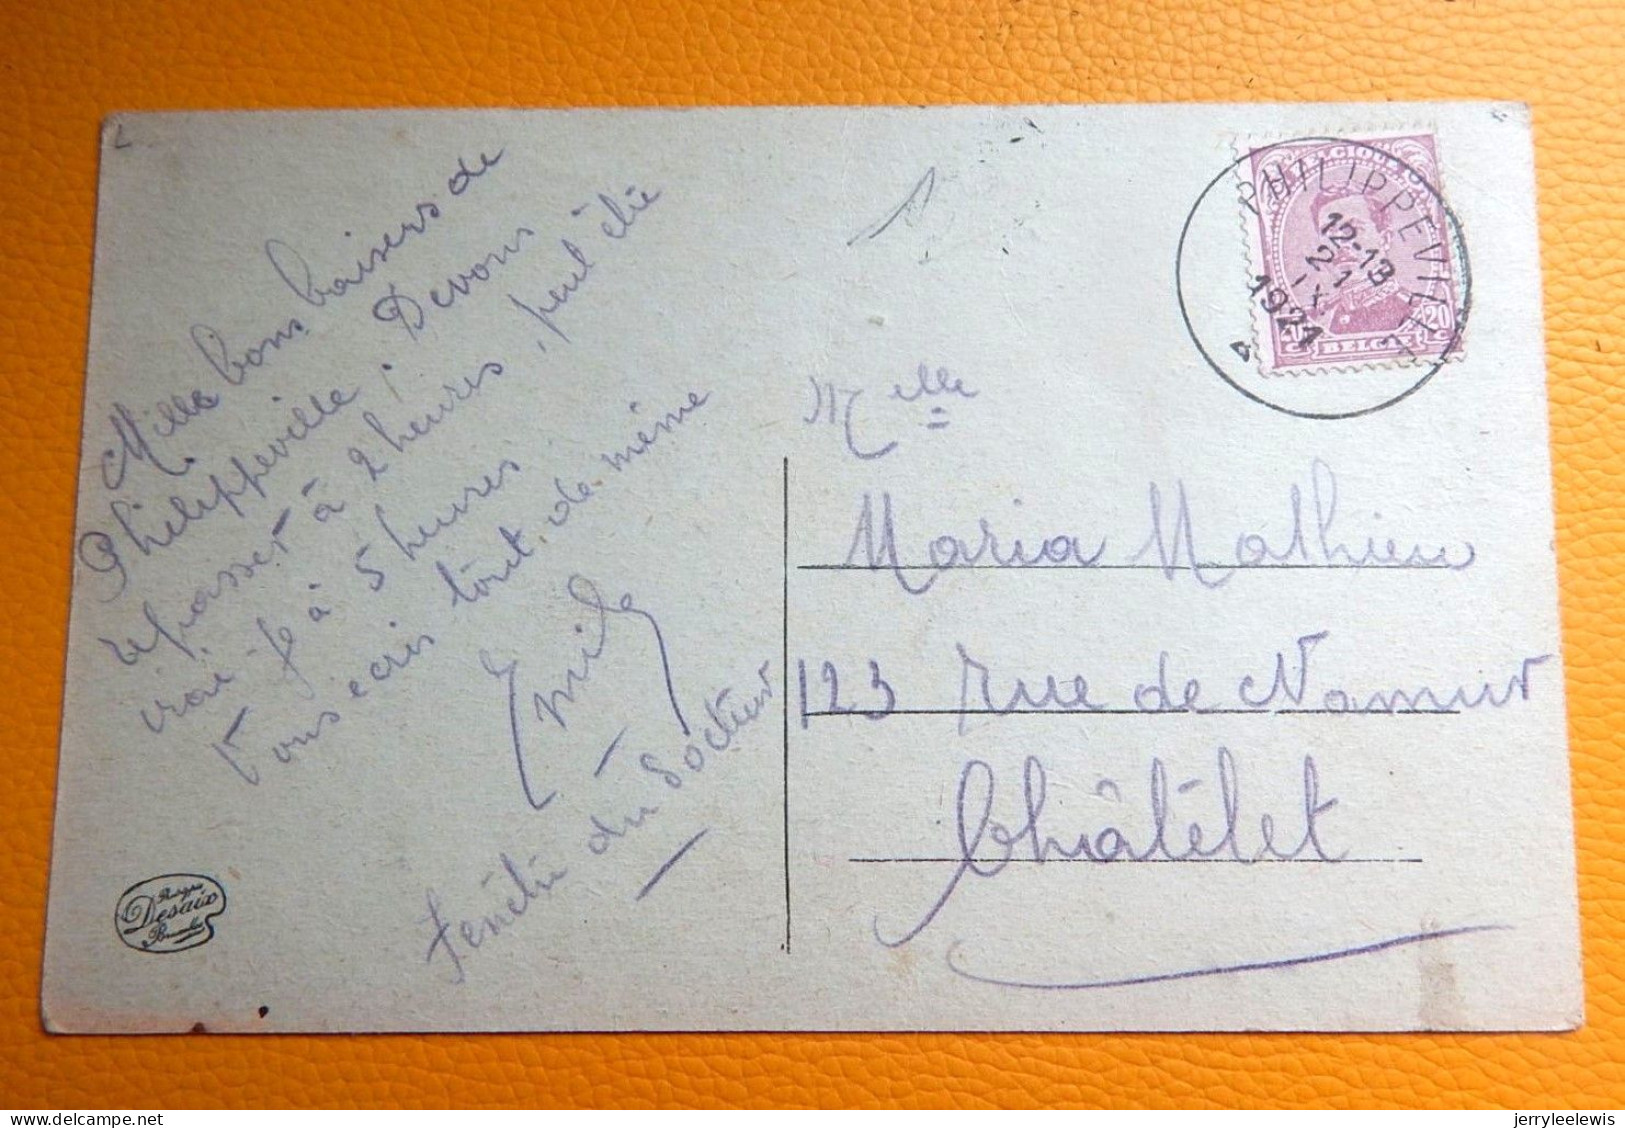 Mille bons baisers de
Philippeville; Devons
repasser à 2 heures, peut être
vrai-je à 5 heures.
Vous écris tout de même
Emile
du Docteur
Melle
Maria Mathieu
123 rue de Namur
Châtelet
BELGIQUE
20 C
BELGIE
PHILIPPEVILLE
12-13
21
IX
1921
Desaix
Bruxelles
jerryleelewis